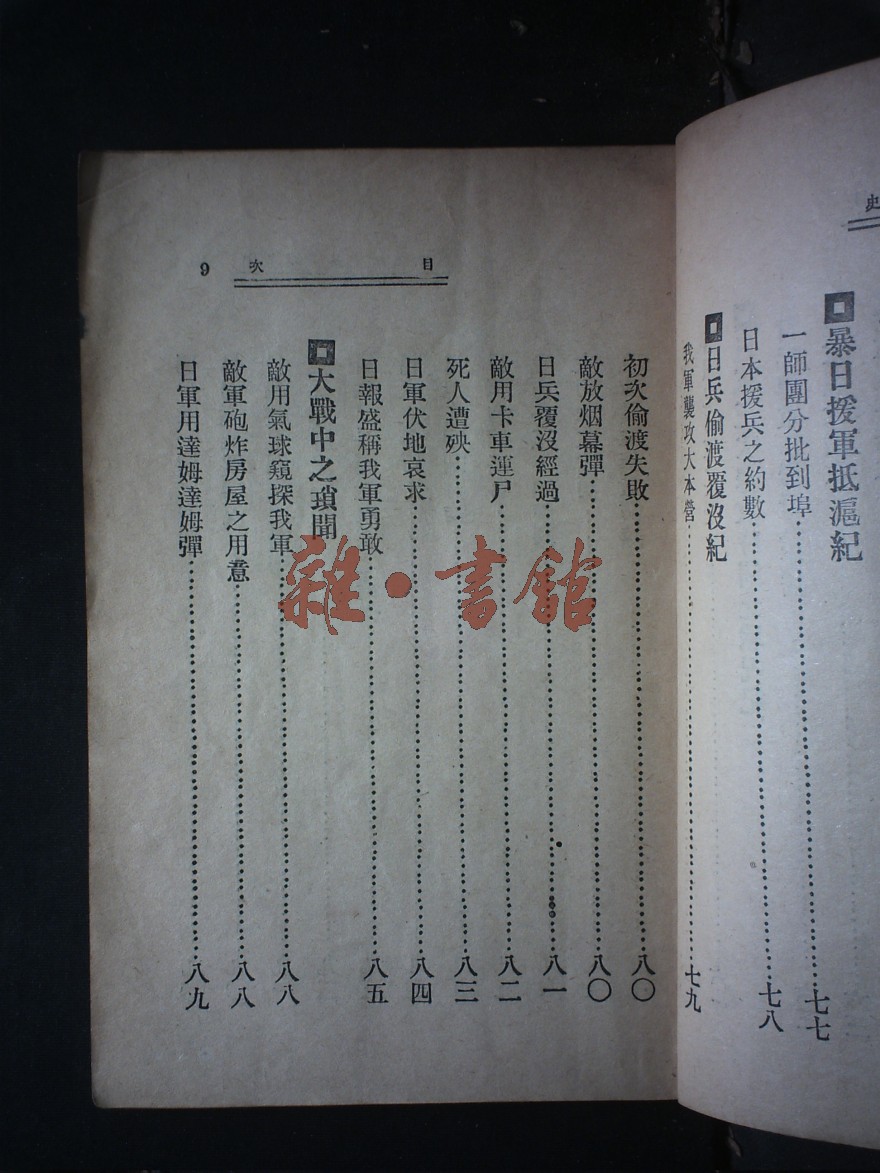 史
暴日援軍抵滬紀
一師團分批到埠……七七
日本援兵之約數……七八
日兵偷渡覆沒紀
我軍襲攻大本營……七九
目次 9
初次偷渡失敗……八〇
敵放烟幕彈……八〇
日兵覆沒經過……八一
敵用卡車運尸……八二
死人遭殃……八三
日軍伏地哀求……八四
日報盛稱我軍勇敢……八五
大戰中之瑣聞
敵用氣球窺探我軍……八八
敵軍砲炸房屋之用意……八八
日軍用達姆達姆彈……八九
雜·書館